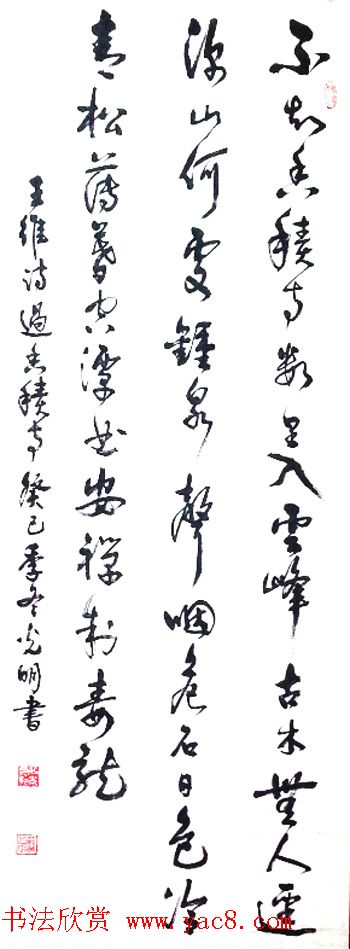 不知香積寺數里入雲峰古木無人逕
深山何處鍾泉聲咽危石日色冷
青松薄暮空潭曲安禪制毒龍
王維詩過香積寺癸巳季冬光明書
书法欣赏 www.yac8.com